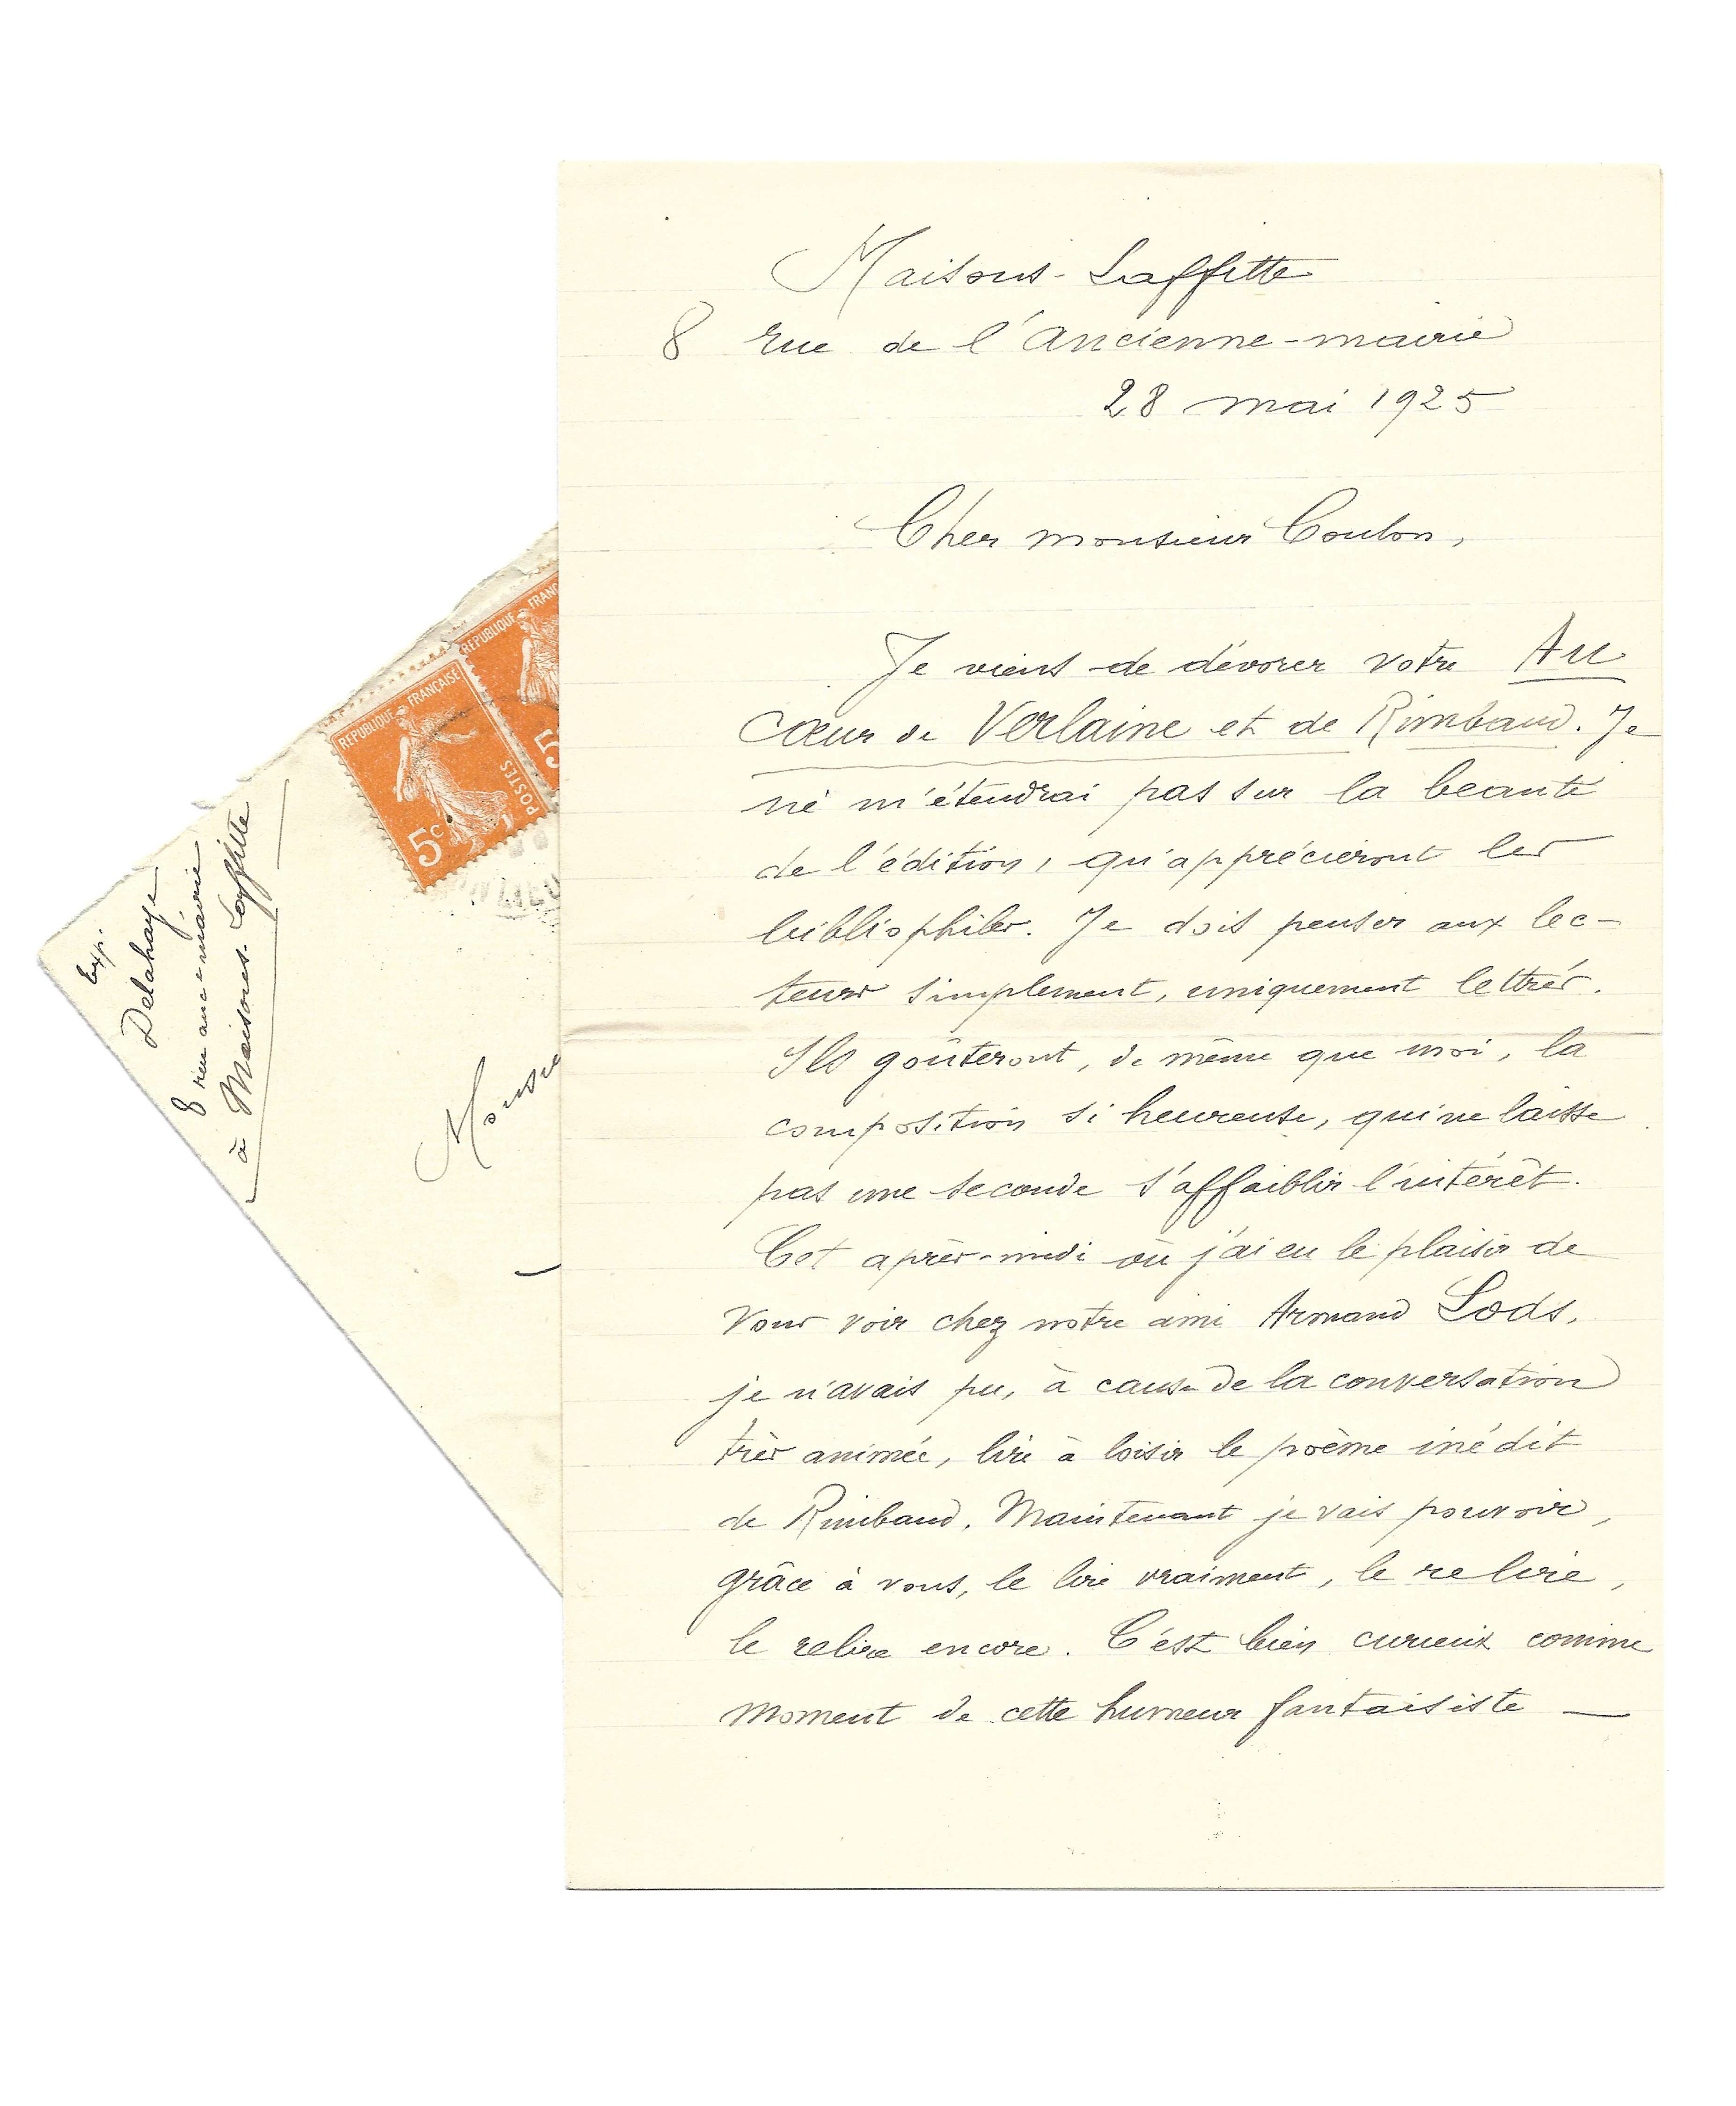 Maisons-Laffitte
8 rue de l'ancienne-mairie
28 mai 1925
Cher monsieur Coulon,
Je viens de dévorer votre Au
cœur de Verlaine et de Rimbaud. Je
ne m'étendrai pas sur la beauté
de l'édition, qu'apprécieront les
bibliophiles. Je dois penser aux lec-
teurs simplement, uniquement lettrés.
Ils goûteront, de même que moi, la
composition si heureuse, qui ne laisse
pas une seconde s'affaiblir l'intérêt.
Cet après-midi où j'ai eu le plaisir de
vous voir chez notre ami Armand Lods,
je n'avais pu, à cause de la conversation
très animée, lire à loisir le poème inédit
de Rimbaud. Maintenant je vais pouvoir,
grâce à vous, le lire vraiment, le relire,
le relire encore. C'est bien curieux comme
moment de cette humeur fantaisiste —
Exp.
Delahaye
8 rue anc-mairie
à Maisons-Laffitte
Monsie
REPUBLIQUE FRANÇAISE
POSTES
5c
REPUBLIQUE FRAN
5